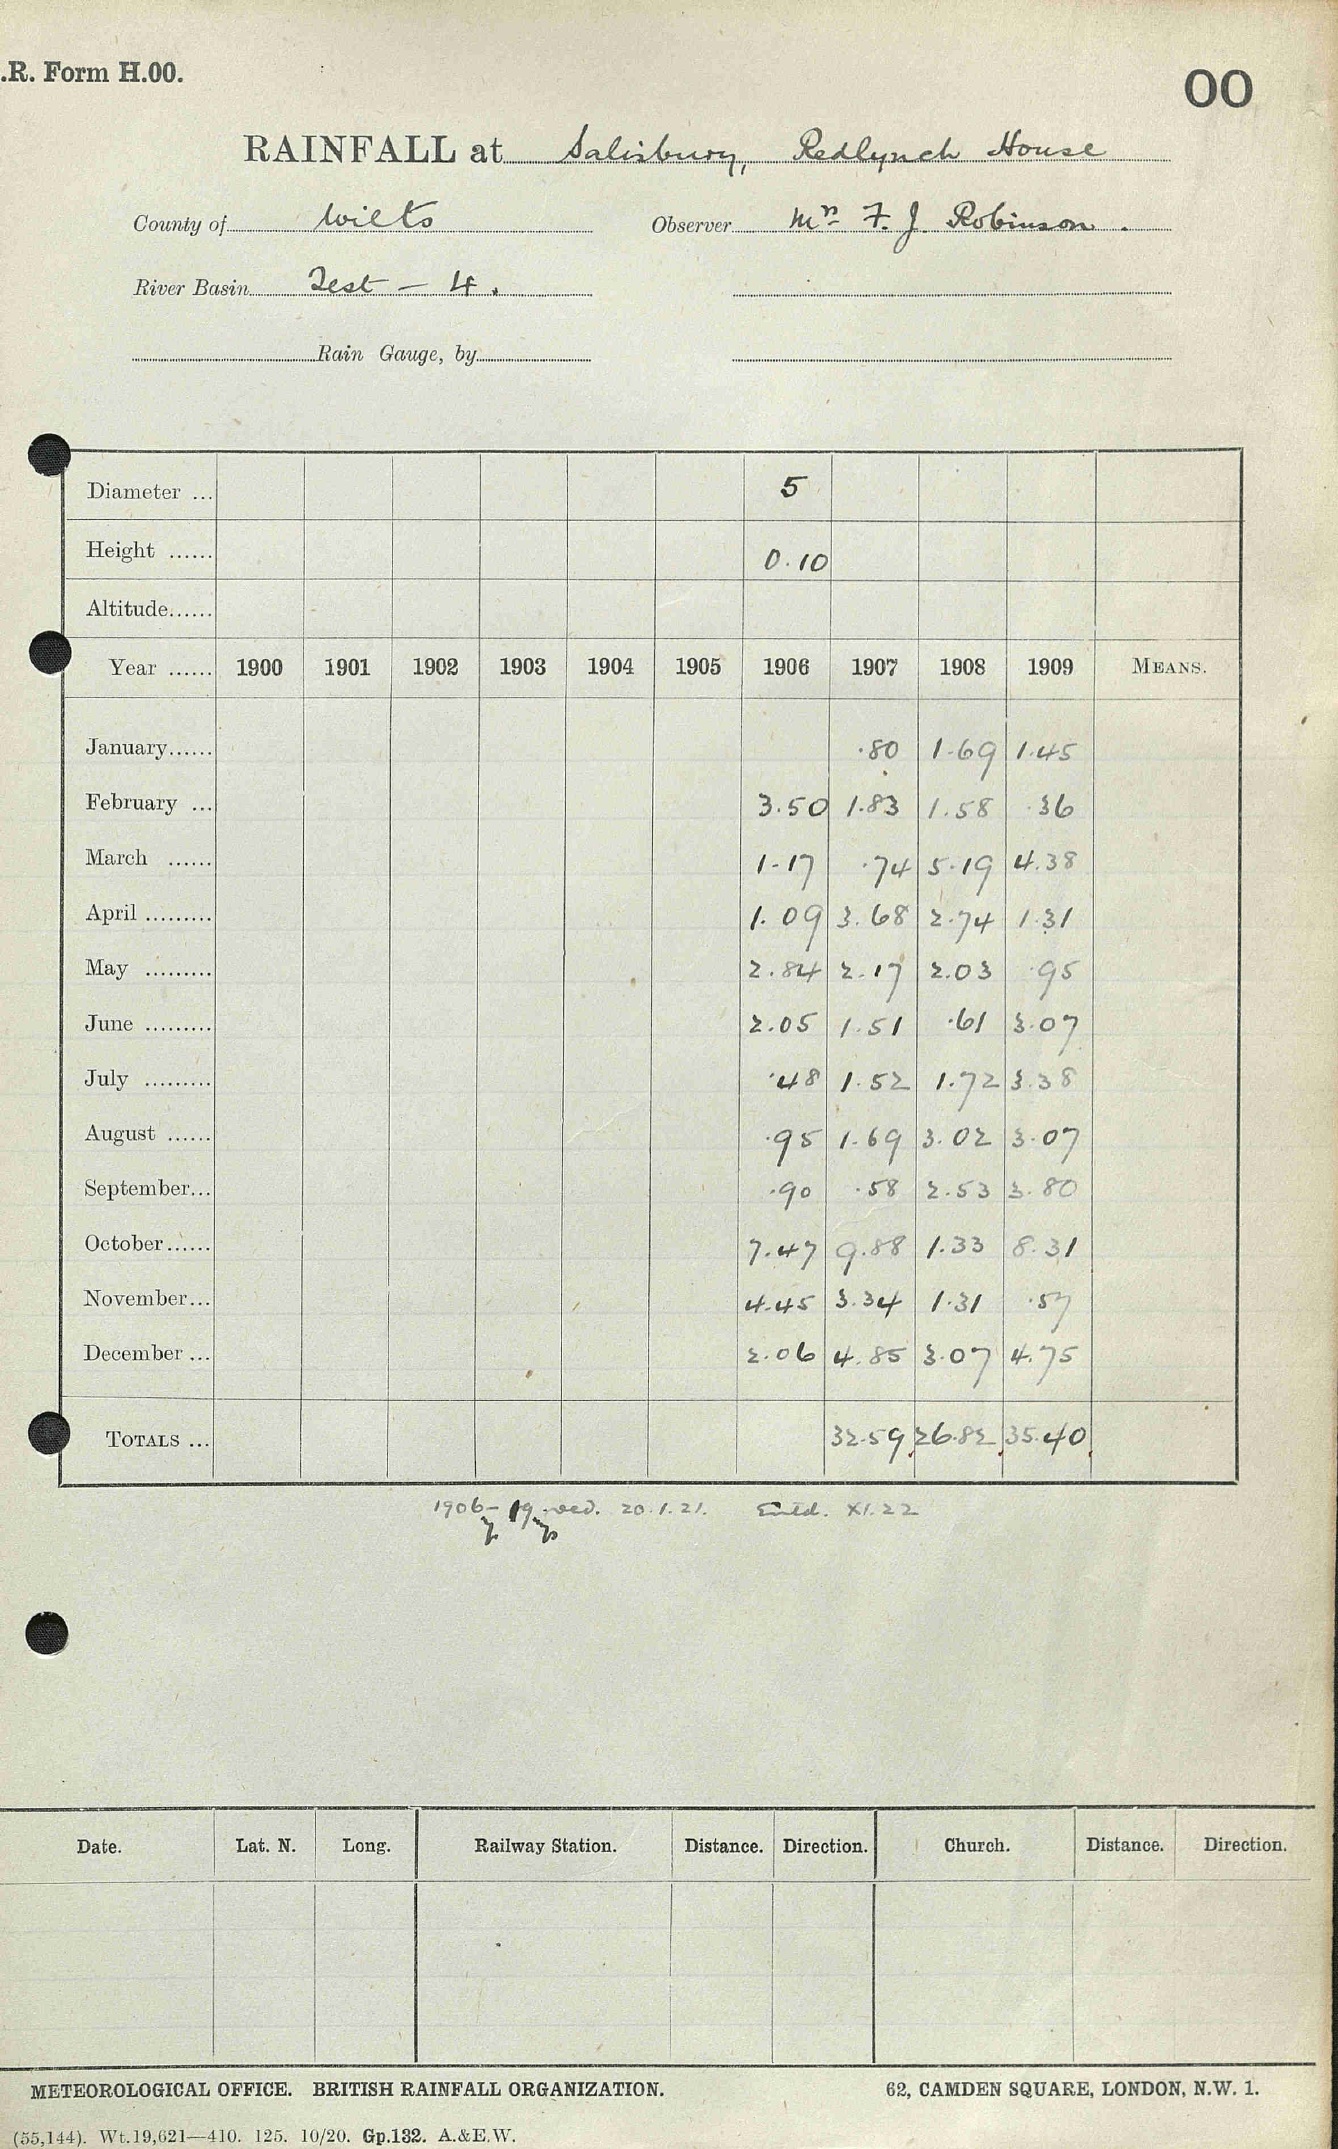 .R. Form H.00.
00
RAINFALL at Salisbury, Redlynch House
County of Wilts Observer Mrs F. J. Robinson.
River Basin Test - 4.
Rain Gauge, by
Diameter ... 5
Height ...... 0.10
Altitude......
Year ...... 1900 1901 1902 1903 1904 1905 1906 1907 1908 1909 MEANS.
January...... .80 1.69 1.45
February ... 3.50 1.83 1.58 .36
March ...... 1.17 .74 5.19 4.38
April ......... 1.09 3.68 2.74 1.31
May ......... 2.84 2.17 2.03 .95
June ......... 2.05 1.51 .61 3.07
July ......... .48 1.52 1.72 3.38
August ...... .95 1.69 3.02 3.07
September... .90 .58 2.53 3.80
October...... 7.47 9.88 1.33 8.31
November... 4.45 3.34 1.31 .57
December ... 2.06 4.85 3.07 4.75
TOTALS ... 32.59 26.82 35.40
1906- 19 recd. 20.1.21. Entd. XI.22
Date. Lat. N. Long. Railway Station. Distance. Direction. Church. Distance. Direction.
METEOROLOGICAL OFFICE. BRITISH RAINFALL ORGANIZATION. 62, CAMDEN SQUARE, LONDON, N.W. 1.
(55,144). Wt.19,621—410. 125. 10/20. Gp.132. A.&E.W.